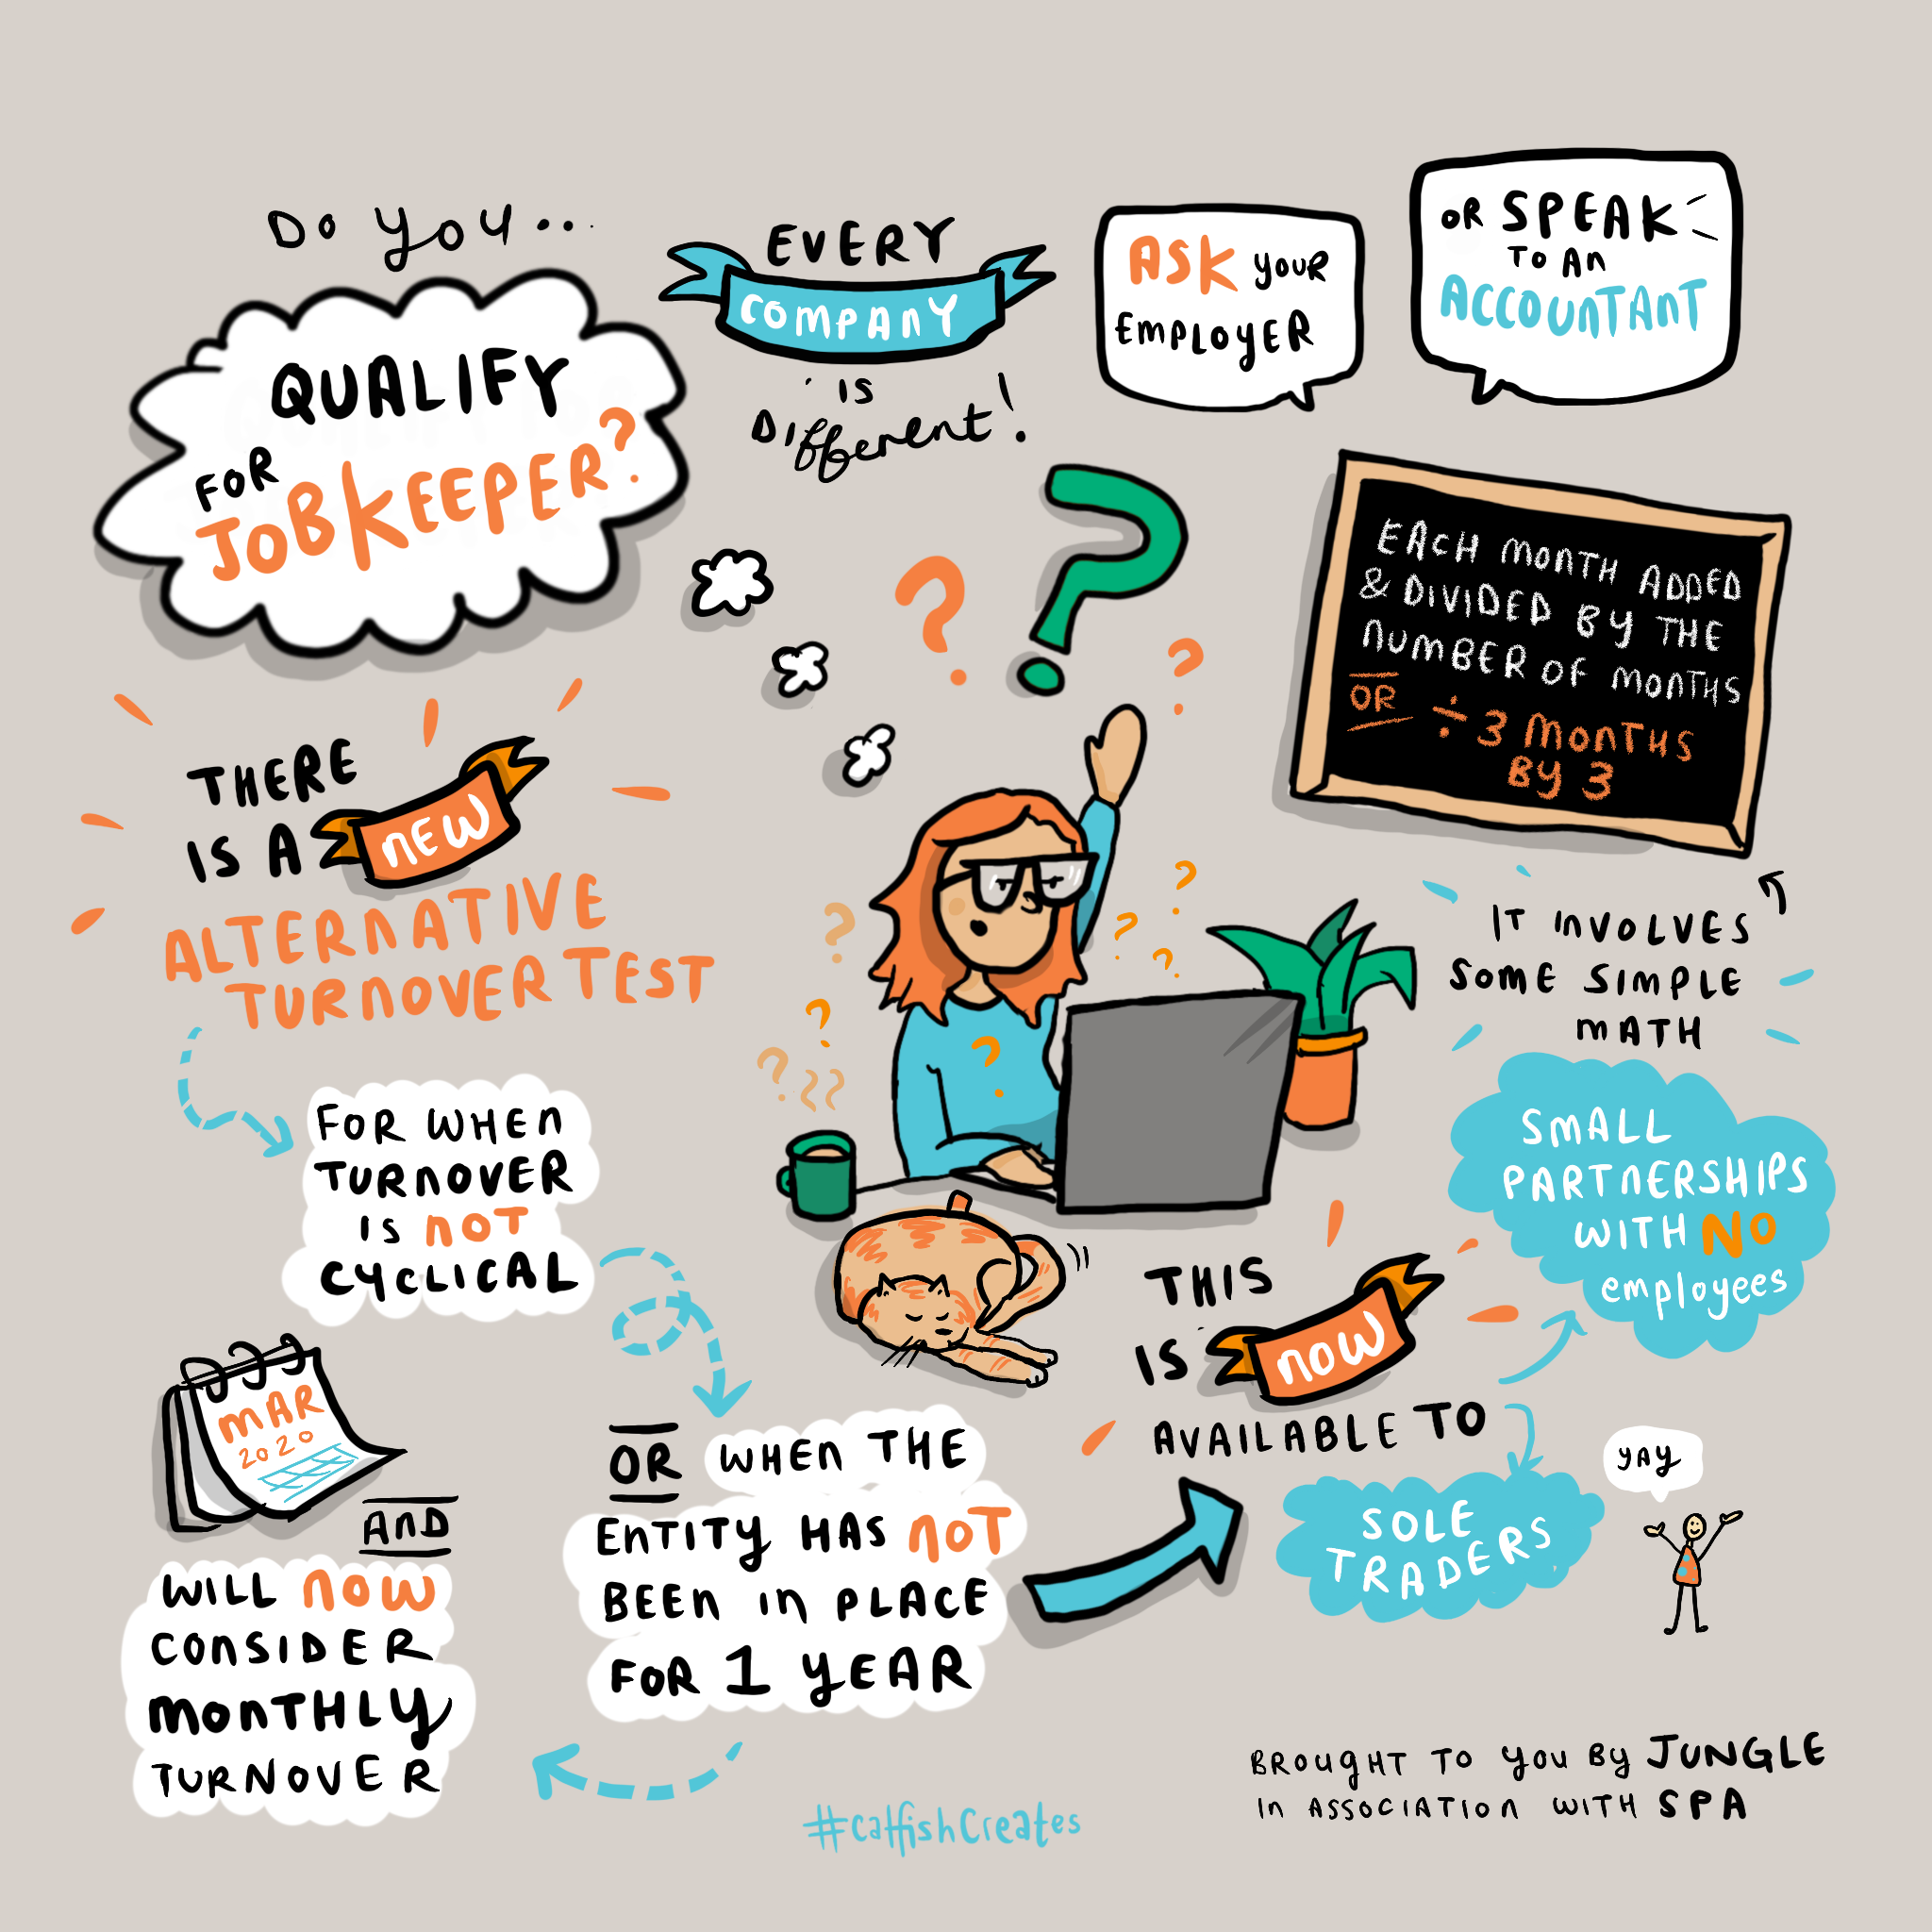 Do you...
QUALIFY
FOR
JOBKEEPER?
EVERY
COMPANY
IS
Different!
ASK YOUR
EMPLOYER
OR SPEAK
TO AN
ACCOUNTANT
EACH MONTH ADDED
& DIVIDED BY THE
NUMBER OF MONTHS
OR ÷ 3 MONTHS
BY 3
IT INVOLVES
SOME SIMPLE
MATH
THERE
IS A NEW
ALTERNATIVE
TURNOVER TEST
FOR WHEN
TURNOVER
IS NOT
CYCLICAL
OR WHEN THE
ENTITY HAS NOT
BEEN IN PLACE
FOR 1 YEAR
MAR
2020
AND
WILL NOW
CONSIDER
MONTHLY
TURNOVER
THIS
IS NOW
AVAILABLE TO
SMALL
PARTNERSHIPS
WITH NO
employees
SOLE
TRADERS
YAY
BROUGHT TO YOU BY JUNGLE
IN ASSOCIATION WITH SPA
#catfishCreates